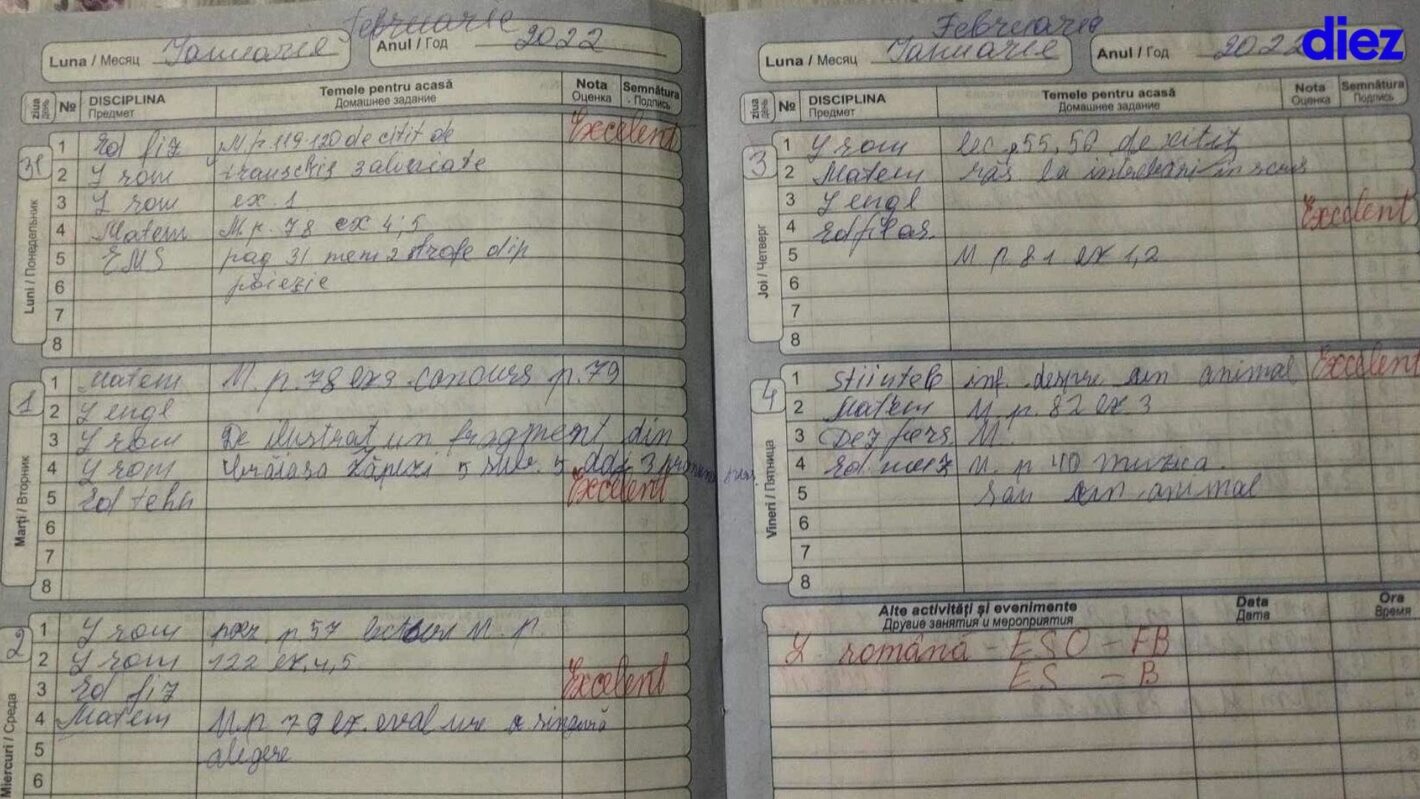 Februarie
Luna / Месяц Ianuarie Anul / Год 2022
ziua день № DISCIPLINA Предмет Temele pentru acasă Домашнее задание Nota Оценка Semnătura Подпись
31 Luni / Понедельник
1 Ed fiz M p. 119-120 de citit de Excelent
2 L rom transcris 3 alineate
3 L rom ex. 1
4 Matem M. p. 78 ex 4; 5
5 EMS pag 31 mem 2 strofe din
6 poiezie
7
8
1 Marți / Вторник
1 Matem M. p. 78 ex 9 concurs p. 79
2 L engl
3 L rom De ilustrat un fragment din
4 L rom Crăiasa Zăpezii 5
5 Ed tehn Excelent
6
7
8
2 Miercuri / Среда
1 L rom p 57 M. p.
2 L rom 122 ex, 4, 5
3 Ed fiz Excelent
4 Matem M. p. 79 ex. singură
5 alegere
6
diez
Februarie
Luna / Месяц Ianuarie Anul / Год 2022
ziua день № DISCIPLINA Предмет Temele pentru acasă Домашнее задание Nota Оценка Semnătura Подпись
3 Joi / Четверг
1 L rom lec. 55, 56 de citit
2 Matem răs la întrebări în scris
3 L engl
4 Excelent
5 M p. 81 ex 1, 2
6
7
8
4 Vineri / Пятница
1 Științele inf. despre un animal Excelent
2 Matem M. p. 82 ex 3
3 Dez pers M.
4 Ed. muz M. p 40 muzica.
5 sau un animal
6
7
8
Alte activități și evenimente Другие занятия и мероприятия Data Дата Ora Время
L română - ESO - FB
ES - B